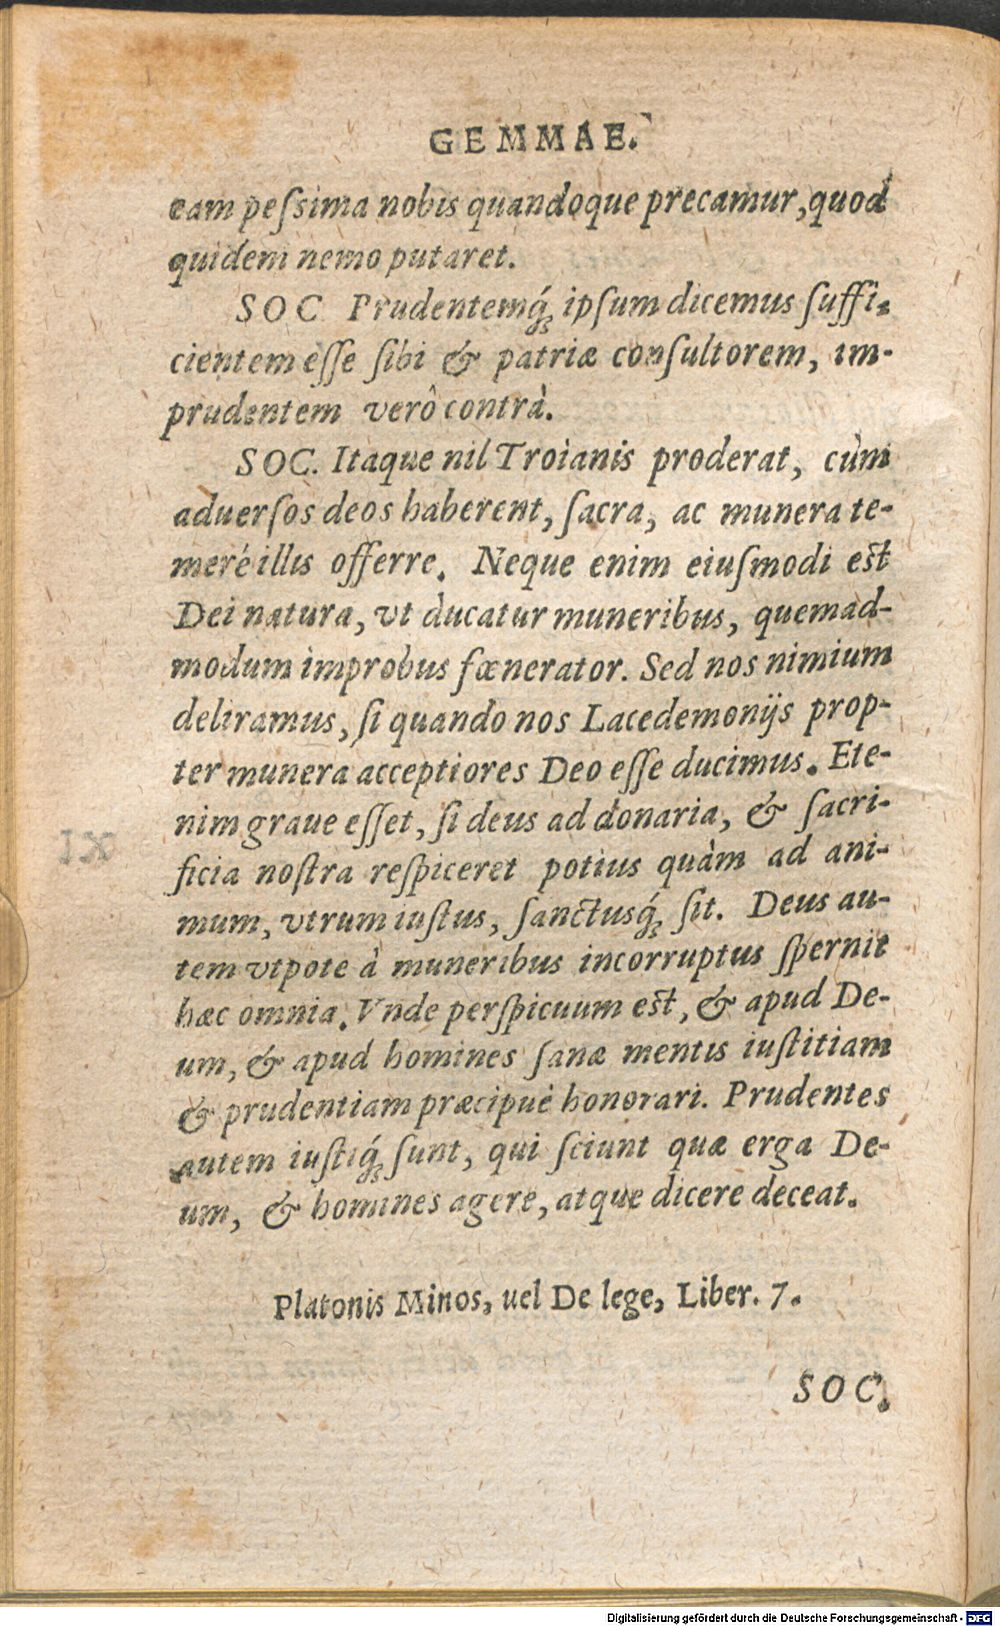 GEMMAE.
eam peſsima nobis quandoque precamur, quod
quidem nemo putaret.
SOC Prudentemq́ꝫ ipſum dicemus ſuffi-
cientem eſſe ſibi & patriæ conſultorem, im-
prudentem verò contrà.
SOC. Itaque nil Troianis proderat, cùm
aduerſos deos haberent, ſacra, ac munera te-
merè illis offerre. Neque enim eiuſmodi est
Dei natura, vt ducatur muneribus, quemad-
modum improbus fœnerator. Sed nos nimium
deliramus, ſi quando nos Lacedemonijs prop-
ter munera acceptiores Deo eſſe ducimus. Ete-
nim graue eſſet, ſi deus ad donaria, & ſacri-
ficia noſtra reſpiceret potius quàm ad ani-
mum, vtrum iuſtus, ſanctusq́ꝫ ſit. Deus au-
tem vtpote à muneribus incorruptus ſpernit
hæc omnia. Vnde perſpicuum est, & apud De-
um, & apud homines ſanæ mentis iuſtitiam
& prudentiam præcipuè honorari. Prudentes
autem iuſtiq́ꝫ ſunt, qui ſciunt quæ erga De-
um, & homines agere, atque dicere deceat.
Platonis Minos, uel De lege, Liber. 7.
SOC.
Digitalisierung gefördert durch die Deutsche Forschungsgemeinschaft - DFG